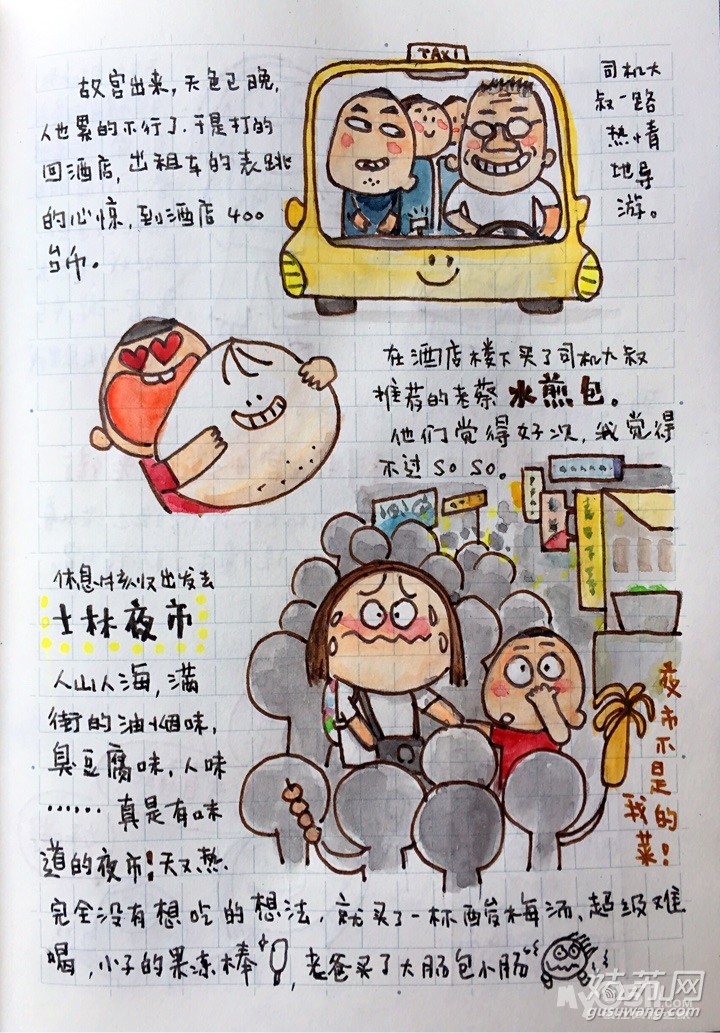 TAXI
故宫出来，天色已晚，
人也累的不行了，于是打的
回酒店，出租车的表跳
的心惊，到酒店 400
台币。
司机大
叔一路
热情
地导
游。
在酒店楼下买了司机大叔
推荐的老蔡水煎包。
他们觉得好次，我觉得
不过 SO SO。
休息时刻又出发去
士林夜市
人山人海，满
街的油烟味，
臭豆腐味，人味
…… 真是有味
道的夜市！天又热，
完全没有想吃的想法，就买了一杯酸梅汤，超级难
喝，小子的果冻棒，老爸买了大肠包小肠
夜市不是
我的
菜！
姑苏网
gusuwang.com